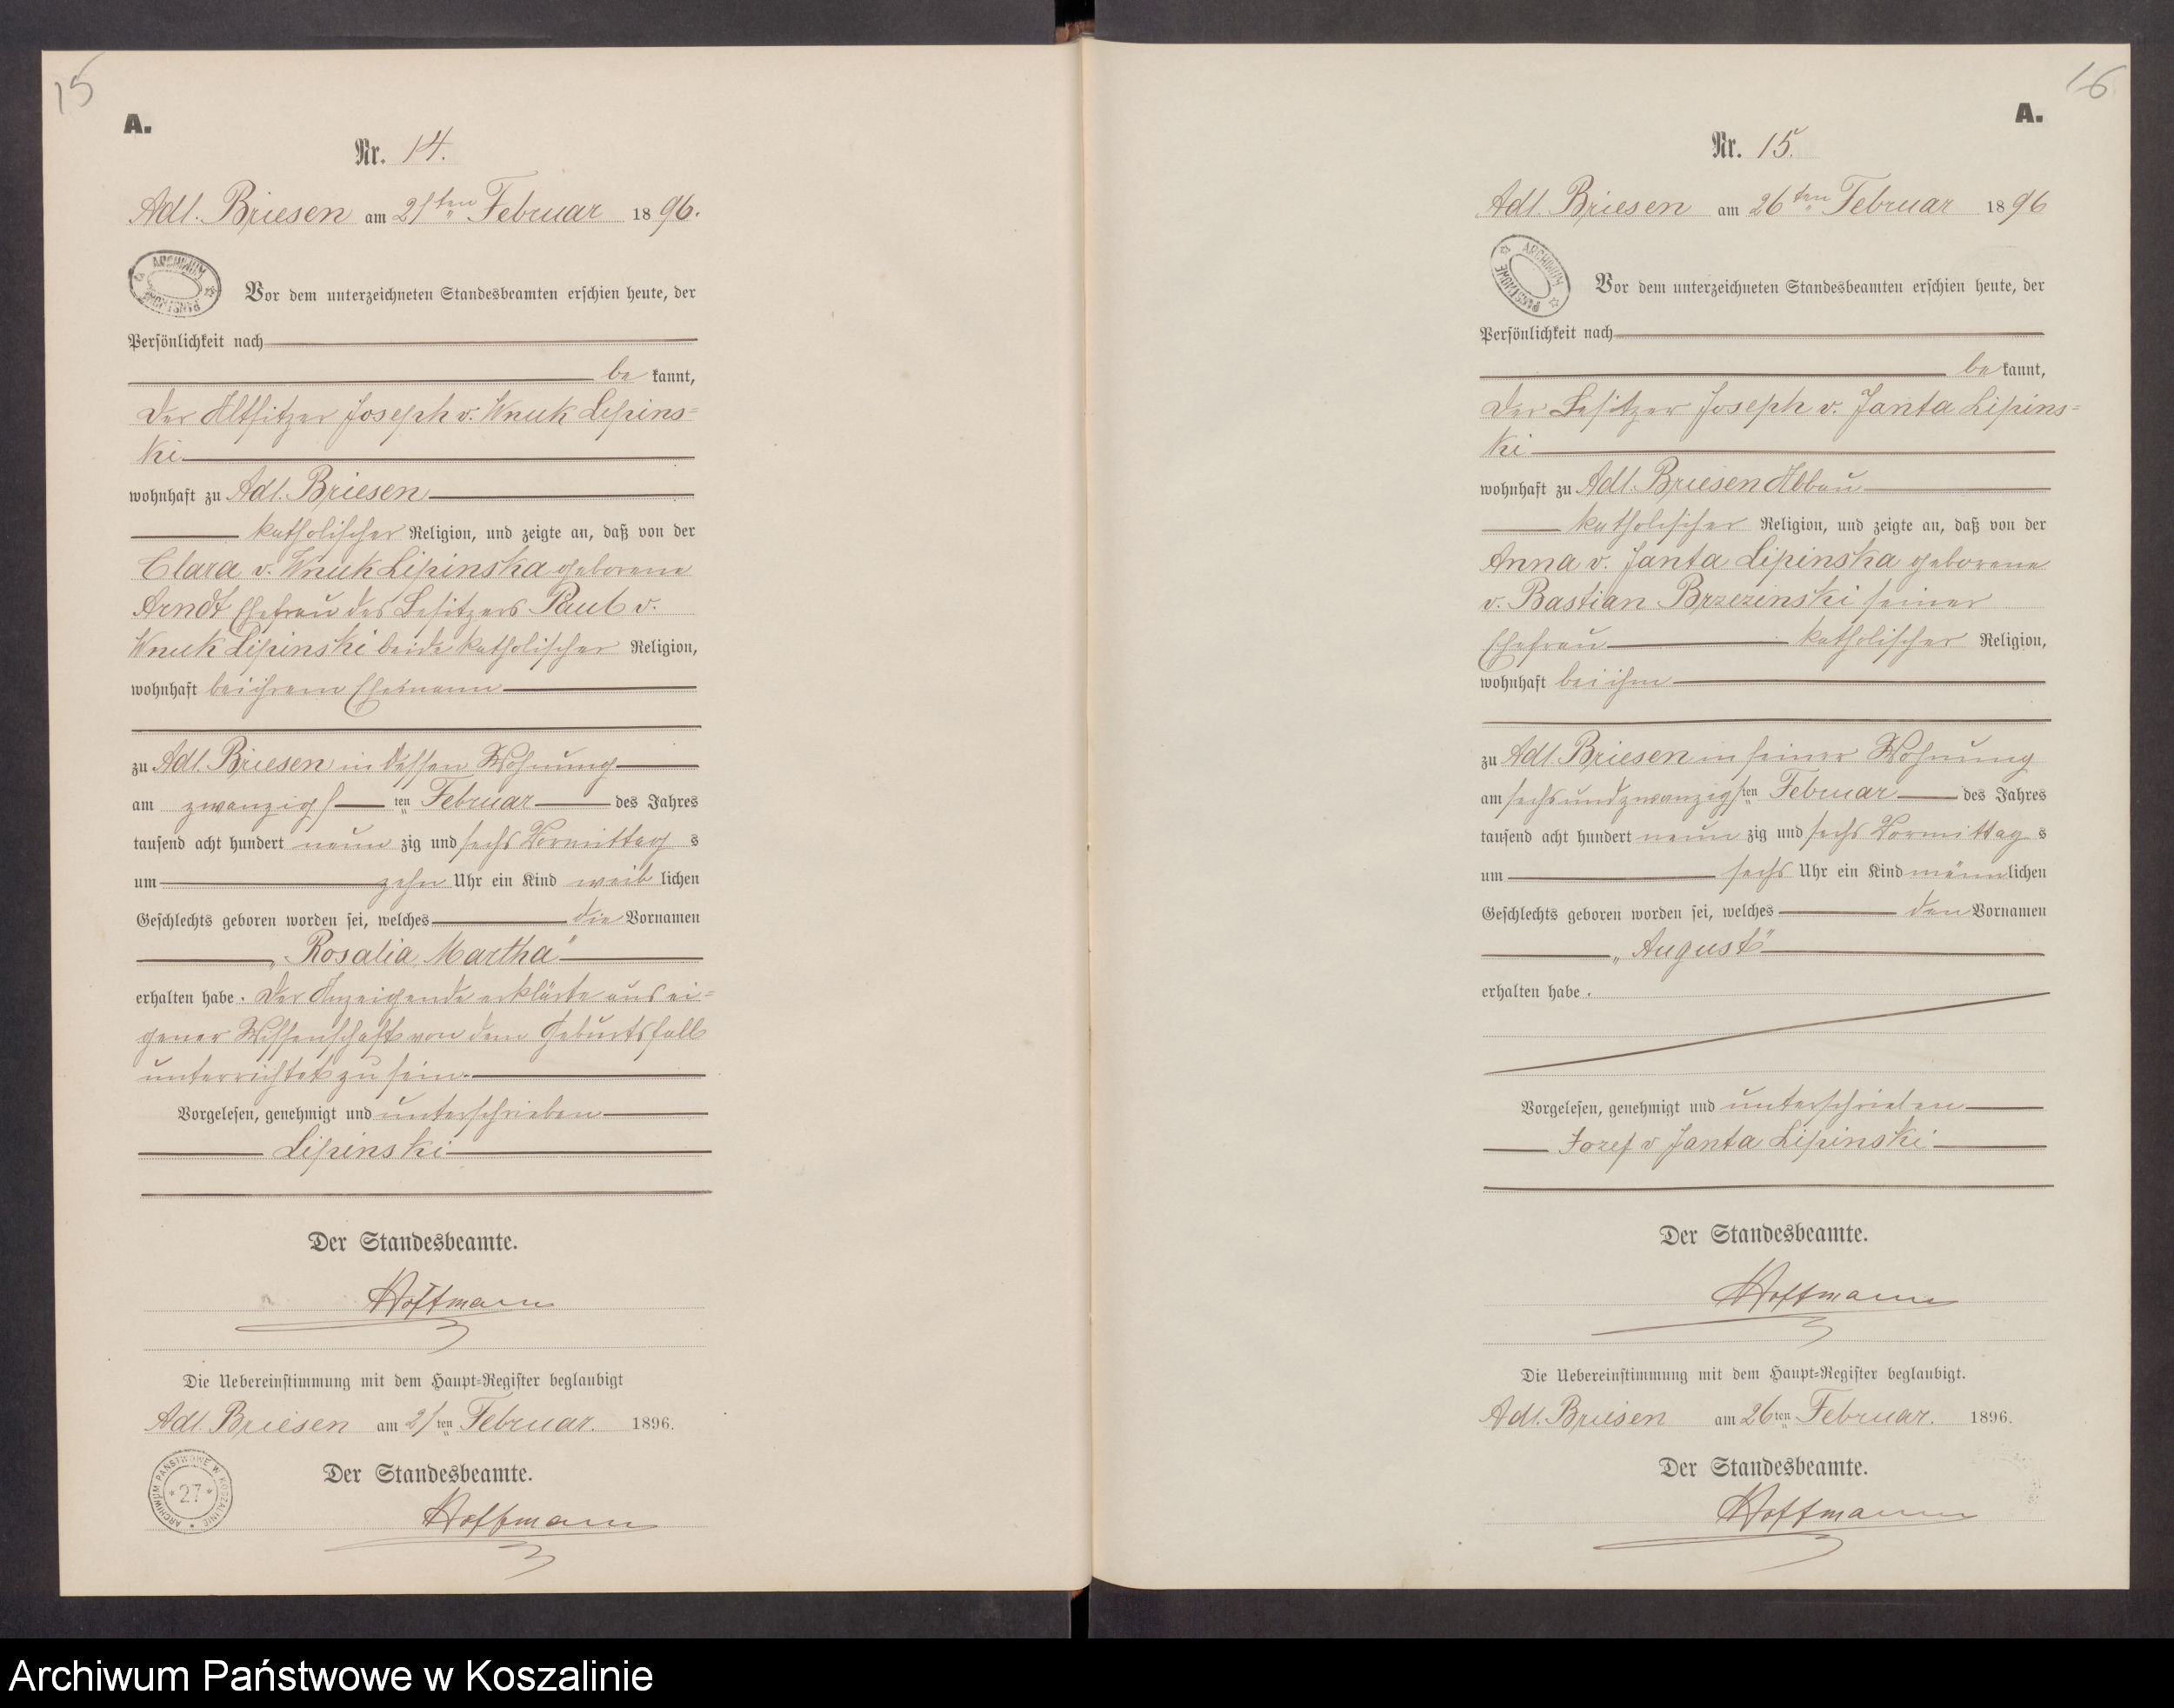 15
A.
Nr. 14.
Adl. Briesen am 21ten Februar 1896.
ARCHIWUM PAŃSTWOWE
Vor dem unterzeichneten Standesbeamten erschien heute, der
Persönlichkeit nach
be kannt,
der Altsitzer Joseph v. Wnuk Lipins=
ki
wohnhaft zu Adl. Briesen
katholischer Religion, und zeigte an, daß von der
Clara v. Wnuk Lipinska geborene
Arndt Ehefrau des Besitzers Paul v.
Wnuk Lipinski beide katholischer Religion,
wohnhaft bei ihrem Ehemann
zu Adl. Briesen in dessen Wohnung
am zwanzigs ten Februar des Jahres
tausend acht hundert neun zig und sechs Vormittag s
um zehn Uhr ein Kind weib lichen
Geschlechts geboren worden sei, welches die Vornamen
„Rosalia Martha"
erhalten habe. Der Anzeigende erklärte aus ei=
gener Wissenschaft von dem Geburtsfall
unterrichtet zu sein.
Vorgelesen, genehmigt und unterschrieben
Lipinski
Der Standesbeamte.
Hoffmann
Die Uebereinstimmung mit dem Haupt=Register beglaubigt
Adl. Briesen am 21ten Februar. 1896.
Der Standesbeamte.
ARCHIWUM PAŃSTWOWE W KOSZALINIE
* 27 *
Hoffmann
16
A.
Nr. 15.
Adl. Briesen am 26ten Februar 1896
ARCHIWUM PAŃSTWOWE
Vor dem unterzeichneten Standesbeamten erschien heute, der
Persönlichkeit nach
be kannt,
der Besitzer Joseph v. Janta Lipins=
ki
wohnhaft zu Adl. Briesen Abbau
katholischer Religion, und zeigte an, daß von der
Anna v. Janta Lipinska geborene
v. Bastian Brzezinski seiner
Ehefrau katholischer Religion,
wohnhaft bei ihm
zu Adl. Briesen in seiner Wohnung
am sechsundzwanzigsten Februar des Jahres
tausend acht hundert neun zig und sechs Vormittag s
um sechs Uhr ein Kind männlichen
Geschlechts geboren worden sei, welches den Vornamen
„August"
erhalten habe.
Vorgelesen, genehmigt und unterschrieben
Jozef v Janta Lipinski
Der Standesbeamte.
Hoffmann
Die Uebereinstimmung mit dem Haupt=Register beglaubigt.
Adl. Briesen am 26ten Februar. 1896.
Der Standesbeamte.
Hoffmann
Archiwum Państwowe w Koszalinie